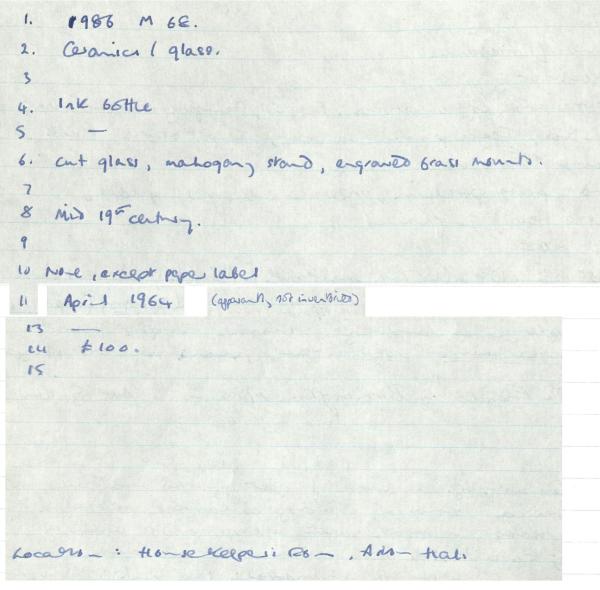 1. 1986 M 68.
2. Ceramics / glass.
3
4. Ink bottle
5 —
6. cut glass, mahogany stand, engraved brass mounts.
7
8 Mid 19th century.
9
10 None, except paper label
11 April 1964 (apparently not inventoried)
13 —
14 £100.
15
Location : Housekeeper's Room, Hall